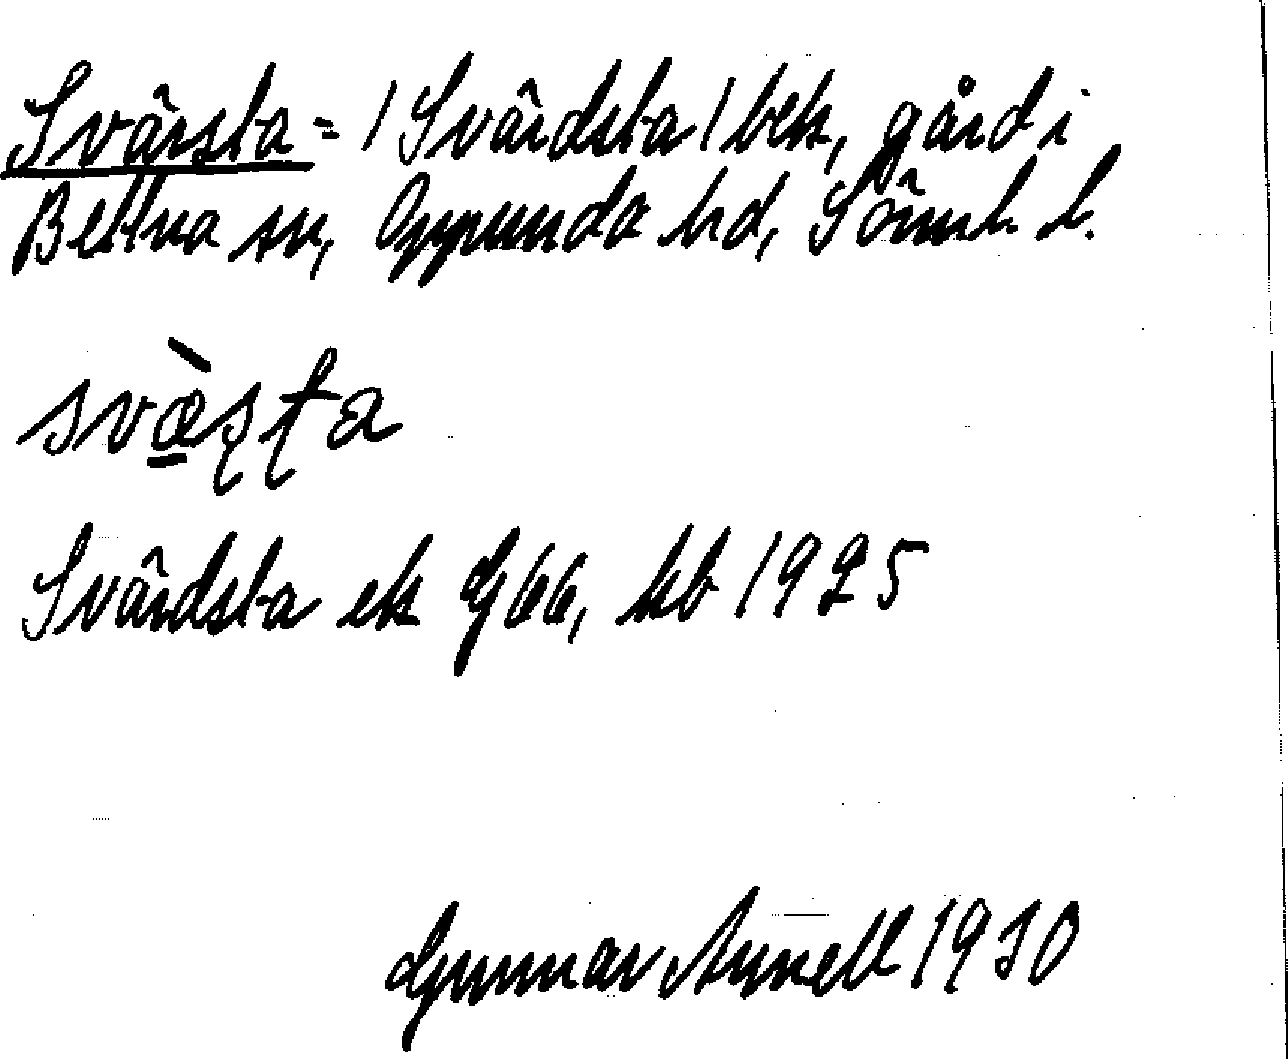 Svärsta = / Svärdsta / bek, gård i
Bettna sn, Oppunda hd, Sörml. l.
svæ̱̀ʂʈa
Svärdsta ek G66, kb 1925
Gunnar Arnell 1930